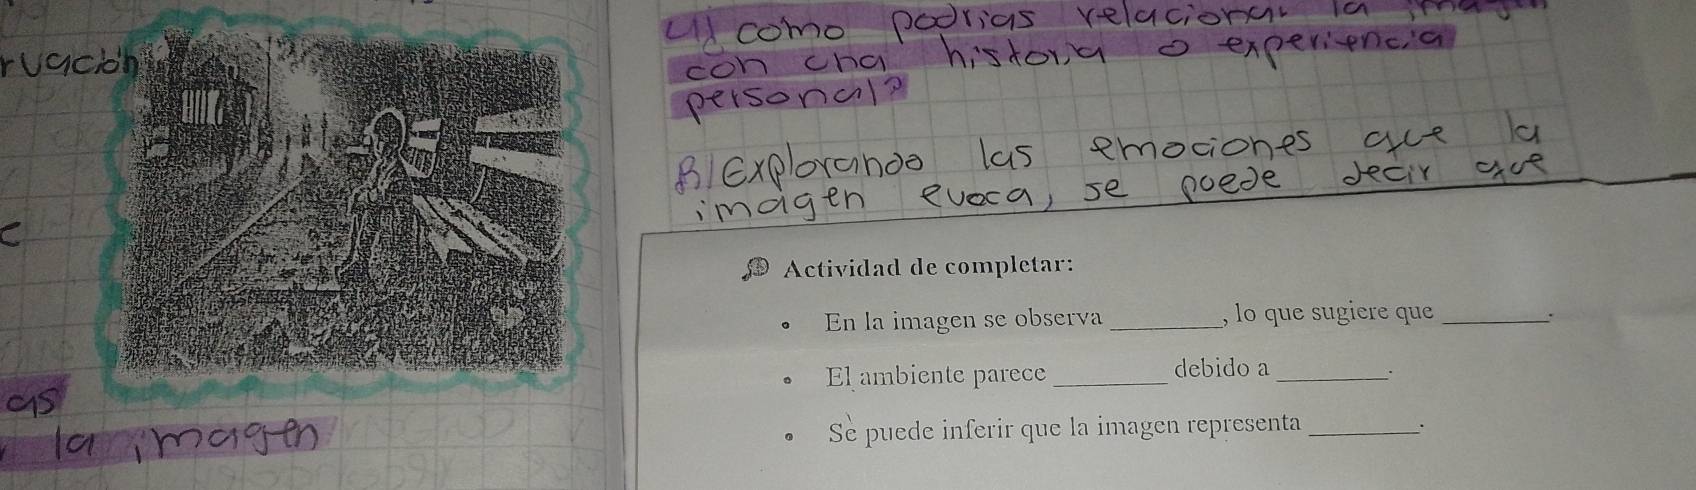 rvación
as
la imagen
4) como podrias relacionar la imagen
con una historia o experiencia
personal?
R/ Explorando las emociones que la
imagen evoca, se puede decir que
Actividad de completar:
• En la imagen se observa ________, lo que sugiere que ________.
• El ambiente parece ________ debido a ________.
• Se puede inferir que la imagen representa ________.